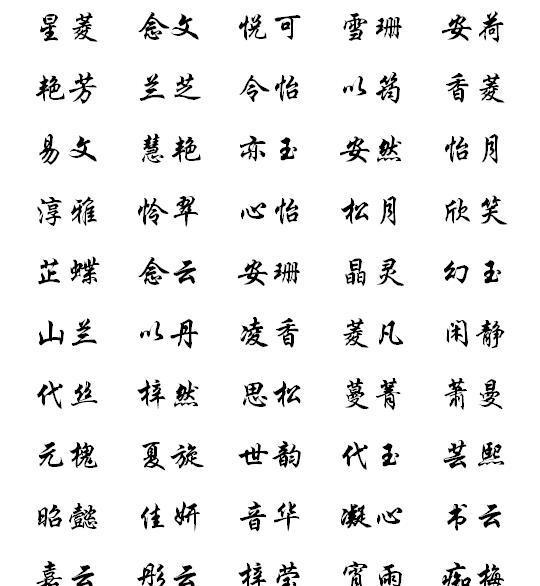 星菱 念文 悦可 雪珊 安荷
艳芳 兰芝 令怡 以筠 香菱
易文 慧艳 亦玉 安然 怡月
淳雅 怜翠 心怡 松月 欣笑
芷蝶 念云 安珊 晶灵 幻玉
山兰 以丹 凌香 菱凡 闲静
代丝 梓然 思松 蔓菁 萧曼
元槐 夏旋 世韵 代玉 芸熙
昭懿 佳妍 音华 凝心 书云
嘉云 彤云 梓莹 宵雨 痴梅